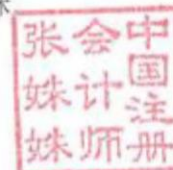 中国注册
会计师
张姝姝